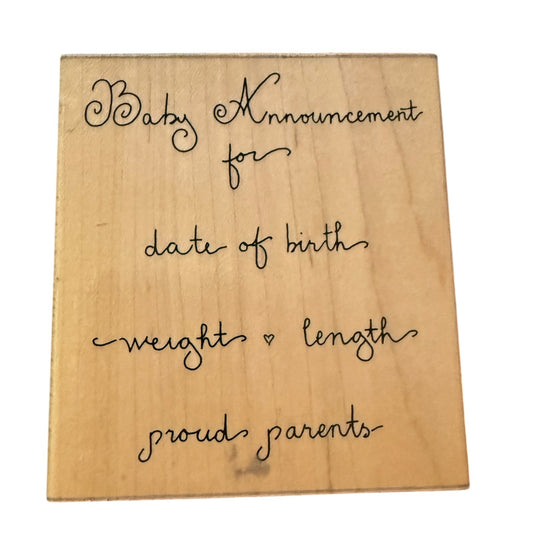 Baby Announcement
for
date of birth
weight ♡ length
proud parents